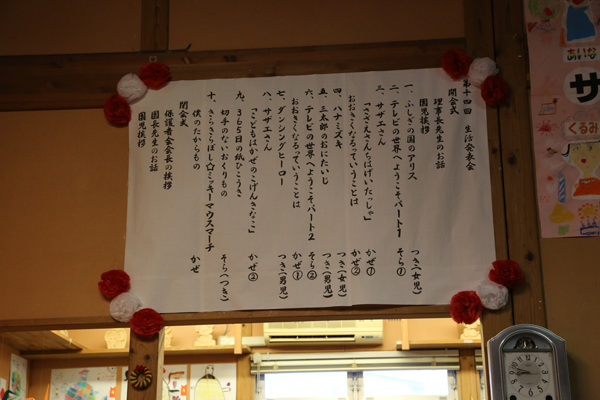 第十四回 生活発表会
開会式
理事長先生のお話
園児挨拶
一、ふしぎの国のアリス つき(女児)
二、テレビの世界へようこそパート1 そら①
三、サザエさん
「さざえさんちはげいたっしゃ」 かぜ①
おおきくなるっていうことは かぜ②
四、ハナミズキ つき(女児)
五、三太郎のおにたいじ つき(男児)
六、テレビの世界へようこそパート2 そら②
おおきくなるっていうことは かぜ①
七、ダンシングヒーロー つき(男児)
八、サザエさん
「こどもはかぜのこげんきなこ」 かぜ②
九、365日の紙ひこうき
切手のないおくりもの そら(つき)
十、きらきらぼし☆ミッキーマウスマーチ
僕のたからもの かぜ
閉会式
保護者会会長の挨拶
園長先生のお話
園児挨拶
あいな
サ
くるみ